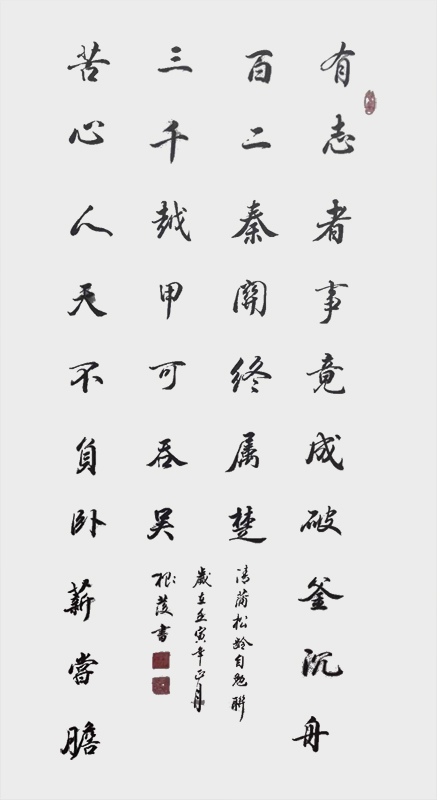 有志者事竟成破釜沉舟
百二秦關終属楚
三千越甲可吞吴
苦心人天不負卧薪嘗膽
清蒲松齡自勉聯
歲在壬寅年正月
根書